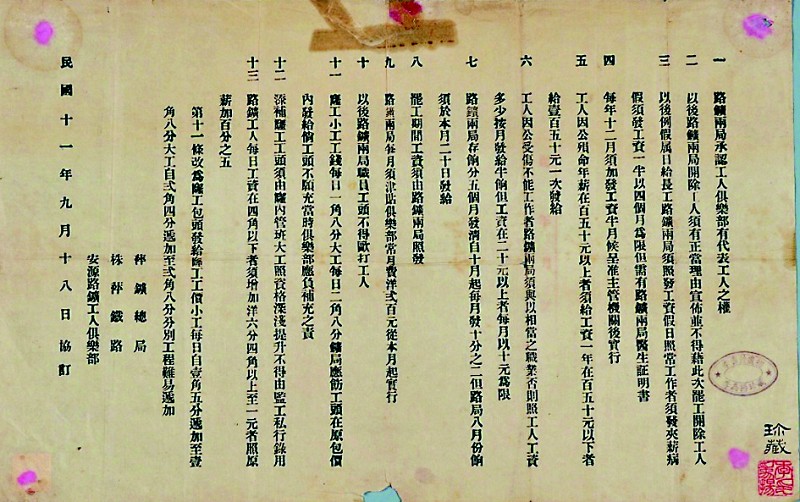 一 路鑛兩局承認工人俱樂部有代表工人之權
二 以後路鑛兩局開除工人須有正當理由宣佈並不得藉此次罷工開除工人
三 以後例假屬日給長工路鑛兩局須照發工資假日照常工作者須發夾薪病
假須發工資一半以四個月為限但需有路鑛兩局醫生証明書
四 每年十二月須加發工資半月候呈准主管機關後實行
五 工人因公殞命年薪在百五十元以上者須給工資一年在百五十元以下者
給壹百五十元一次發給
六 工人因公受傷不能工作者路鑛兩局須與以相當之職業否則照工人工資
多少按月發給半餉但工資在二十元以上者每月以十元為限
七 路鑛兩局存餉分五個月發清自十月起每月發十分之二但路局八月份餉
須於本月二十日發給
八 罷工期間工資須由路鑛兩局照發
九 路鑛兩局每月須津貼俱樂部常月費洋弍百元從本月起實行
十 以後路鑛兩局職員工頭不得歐打工人
十一 窿工小工工錢每日一角八分大工每日二角八分鑛局應飭工頭在原包價
內發給倘工頭不願充當時俱樂部應負補充之責
十二 添補窿工工頭須由窿內管班大工照資格深淺提升不得由監工私行錄用
十三 路鑛工人每日工資在四角以下者須增加洋六分四角以上至一元者照原
薪加百分之五
第十一條改為窿工包頭發給窿工工價小工每日自壹角五分遞加至壹
角八分大工自弍角四分遞加至弍角八分分別工程難易遞加
萍鑛總局
株萍鐵路
安源路鑛工人俱樂部
民國十一年九月十八日協訂
珍藏